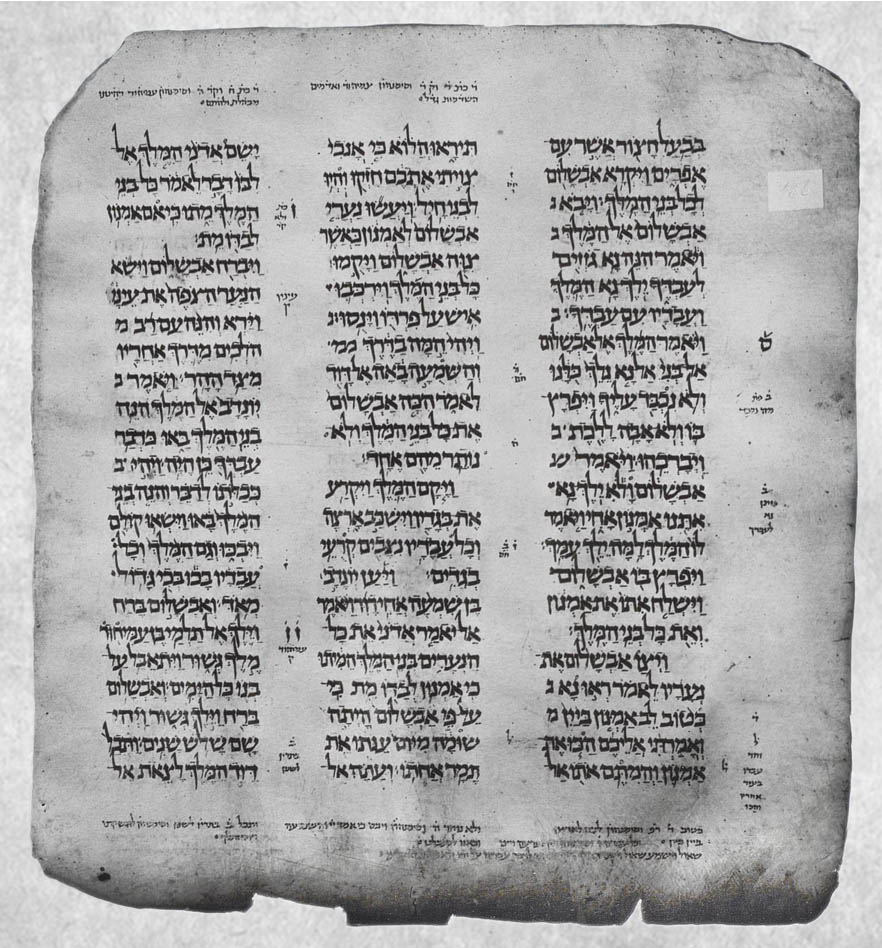 בבעל חצור אשר עם
אפרים ויקרא אבשלום
לכל בני המלך ויבא
אבשלום אל המלך
ויאמר הנה נא גזזים
לעבדך ילך נא המלך
ועבדיו עם עבדך
ויאמר המלך אל אבשלום
אל בני אל נא נלך כלנו
ולא נכבד עליך ויפרץ
בו ולא אבה ללכת
ויברכהו ויאמר
אבשלום ולא ילך נא
אתנו אמנון אחי ויאמר
לו המלך למה ילך עמך
ויפרץ בו אבשלום
וישלח אתו את אמנון
ואת כל בני המלך
ויצו אבשלום את
נעריו לאמר ראו נא
כטוב לב אמנון ביין
ואמרתי אליכם הכו את
אמנון והמתם אתו אל
תיראו הלוא כי אנכי
צויתי אתכם חזקו והיו
לבני חיל ויעשו נערי
אבשלום לאמנון כאשר
צוה אבשלום ויקמו
כל בני המלך וירכבו
איש על פרדו וינסו
ויהי המה בדרך
והשמעה באה אל דוד
לאמר הכה אבשלום
את כל בני המלך ולא
נותר מהם אחד
ויקם המלך ויקרע
את בגדיו וישכב ארצה
וכל עבדיו נצבים קרעי
בגדים ויען יונדב
בן שמעה אחי דוד ויאמר
אל יאמר אדני את כל
הנערים בני המלך המיתו
כי אמנון לבדו מת כי
על פי אבשלום היתה
שומה מיום ענתו את
תמר אחתו ועתה אל
ישם אדני המלך אל
לבו דבר לאמר כל בני
המלך מתו כי אם אמנון
לבדו מת
ויברח אבשלום וישא
הנער הצפה את עינו
וירא והנה עם רב
הלכים מדרך אחריו
מצד ההר ויאמר
יונדב אל המלך הנה
בני המלך באו כדבר
עבדך כן היה ויהי
ככלתו לדבר והנה בני
המלך באו וישאו קולם
ויבכו וגם המלך וכל
עבדיו בכו בכי גדול
מאד ואבשלום ברח
וילך אל תלמי בן עמיחור
מלך גשור ויתאבל על
בנו כל הימים ואבשלום
ברח וילך גשור ויהי
שם שלש שנים ותכל
דוד המלך לצאת אל